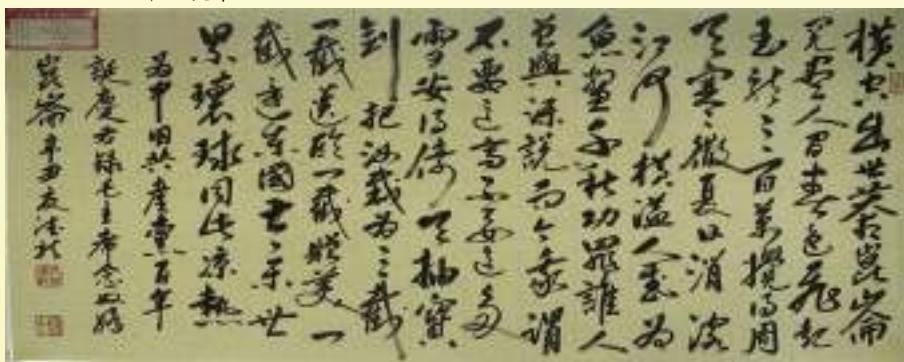 橫空出世莽崑崙
閱盡人間春色飛起
玉龍三百萬攪得周
天寒徹夏日消溶
江河橫溢人或為
魚鱉千秋功罪誰人
曾與評說而今我謂
不要這高不要這多
雪安得倚天抽寶
劍把汝裁為三截
一截遺歐一截贈美一
截還東國太平世
界環球同此涼熱
為中國共產黨百年
誕慶書錄毛主席念奴嬌
崑崙辛丑友